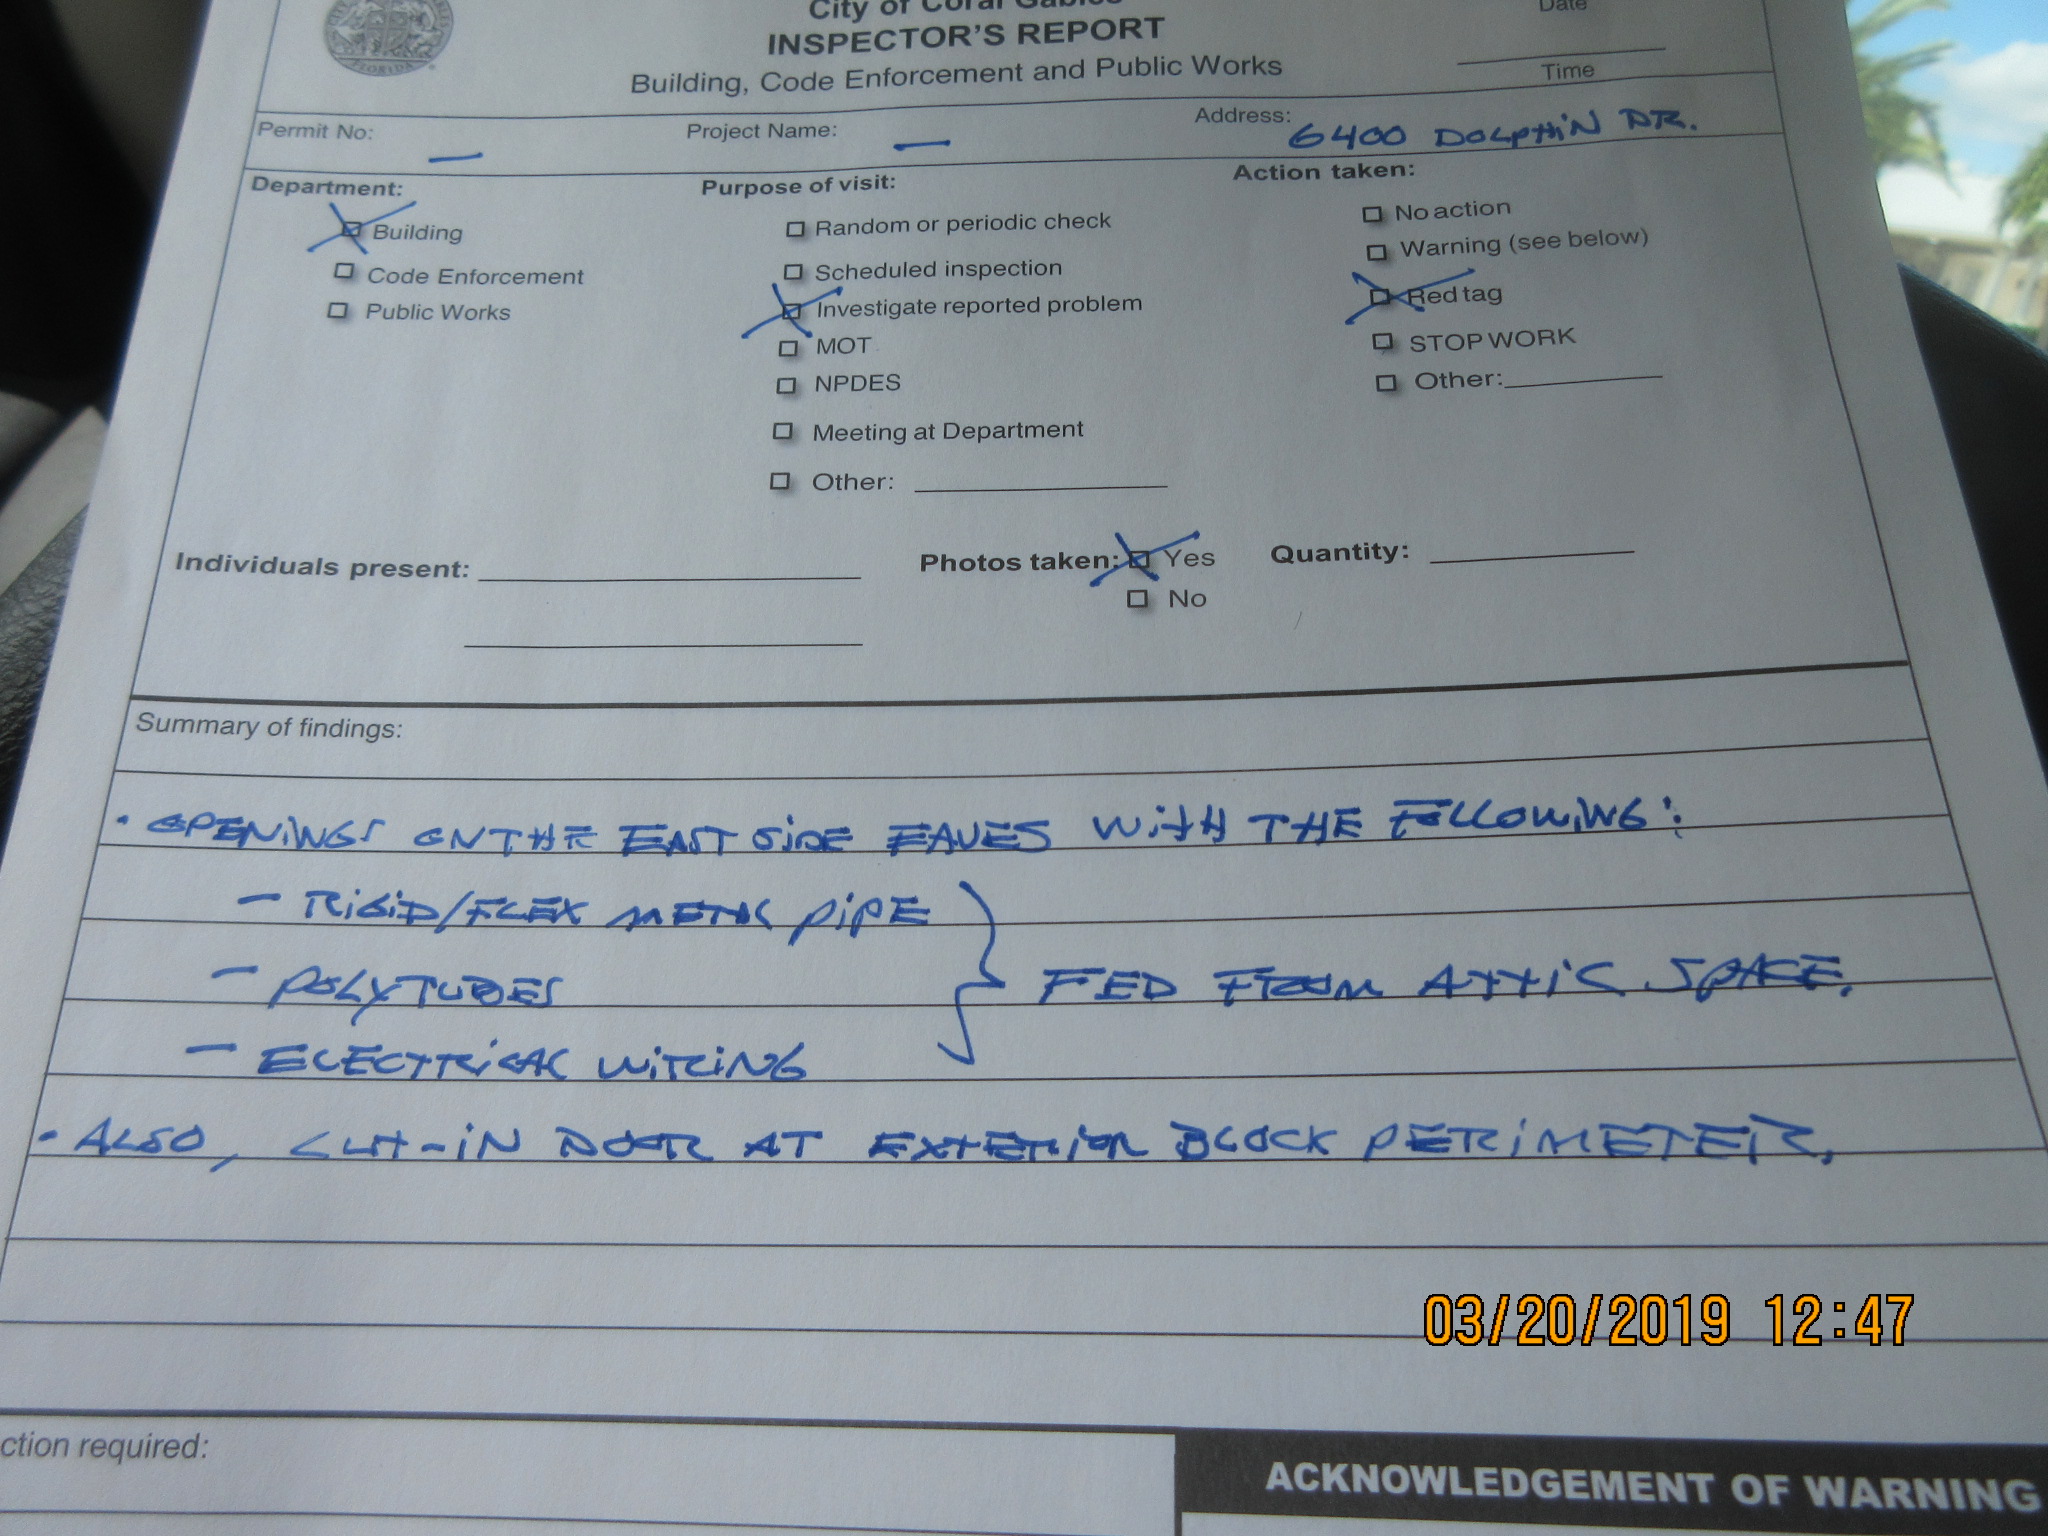 City of Coral Gables
INSPECTOR'S REPORT
Building, Code Enforcement and Public Works
Date
Time
FLORIDA
Permit No: —
Project Name: —
Address: 6400 DOLPHIN DR.
Department:
Building
Code Enforcement
Public Works
Purpose of visit:
Random or periodic check
Scheduled inspection
Investigate reported problem
MOT
NPDES
Meeting at Department
Other:
Action taken:
No action
Warning (see below)
Red tag
STOP WORK
Other:
Individuals present:
Photos taken: Yes
No
Quantity:
Summary of findings:
• OPENINGS ON THE EAST SIDE EAVES WITH THE FOLLOWING:
— RIGID/FLEX METAL PIPE
— POLYTUBES
— ELECTRICAL WIRING
FED FROM ATTIC SPACE.
• ALSO, CUT-IN DOOR AT EXTERIOR BLOCK PERIMETER.
03/20/2019 12:47
ction required:
ACKNOWLEDGEMENT OF WARNING